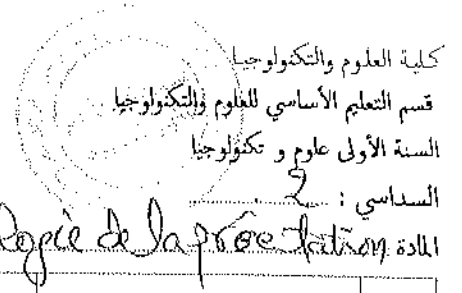 كلية العلوم والتكنولوجيا
قسم التعليم الأساسي للعلوم والتكنولوجيا
السنة الأولى علوم و تكنولوجيا
السداسي : 2
المادة de la